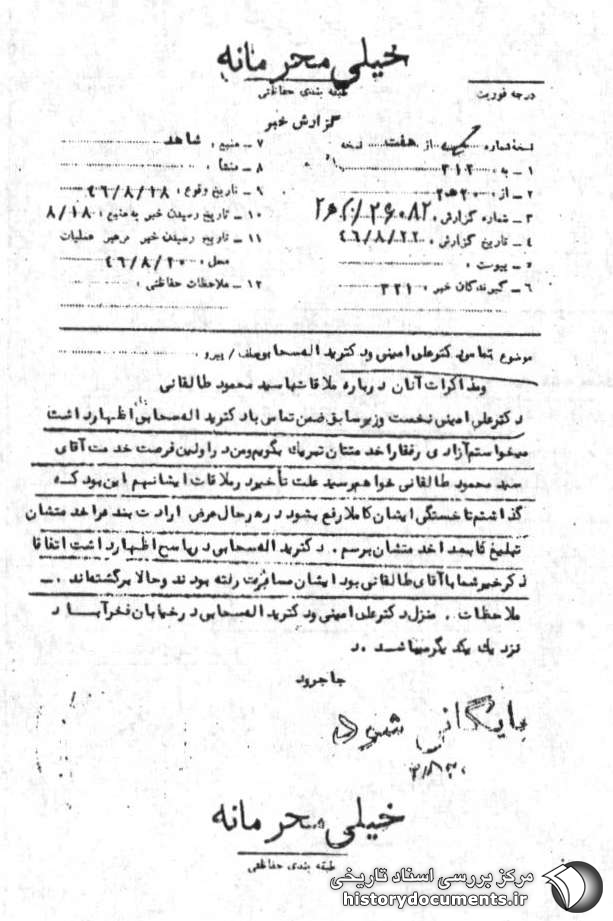 خیلی محرمانه
طبقه بندی حفاظتی
درجه فوریت
گزارش خبر
نسخه شماره از هفت نسخه
۱ ـ به ۳۱۲
۲ ـ از ۲۰ه۲۰
۳ ـ شماره گزارش
۴ ـ تاریخ گزارش ۴۶/۸/۲۲
۵ ـ پیوست
۶ ـ گیرندگان خبر ۳۲۱
۷ ـ منبع شاهد
۸ ـ منشأ
۹ ـ تاریخ وقوع ۴۶/۸/۱۸
۱۰ ـ تاریخ رسیدن خبر به منبع ۸/۱۸
۱۱ ـ تاریخ رسیدن خبر به رهبر عملیات
محل ۴۶/۸/۲۰
۱۲ ـ ملاحظات حفاظتی
موضوع تماس دکتر علی امینی و دکتر یداله سحابی عطف / پیرو
ومذاکرات آنان درباره ملاقات با سید محمود طالقانی
دکتر علی امینی نخست وزیر سابق ضمن تماس با دکتر یداله سحابی اظهار داشت
میخواستم آزادی رفقا را خدمتتان تبریک بگویم ومن در اولین فرصت خدمت آقای
سید محمود طالقانی خواهم رسید علت تأخیر در ملاقات ایشان هم این بود که
گذاشتم تا خستگی ایشان کاملا رفع بشود در هر حال عرض ارادت بنده را خدمتشان
تبلیغ کنید تا بعدا خدمتشان برسم . دکتر یداله سحابی در پاسخ اظهار داشت اتفاقا
ذکر خیر شما با آقای طالقانی بود ایشان مسافرت رفته بودند و حالا برگشته‌اند . ـ
ملاحظات . منزل دکتر علی امینی و دکتر یداله سحابی در خیابان فخرآباد
نزدیک یکدیگر میباشد . د
جاجرود
بایگانی شود
خیلی محرمانه
طبقه بندی حفاظتی
مرکز بررسی اسناد تاریخی
historydocuments.ir